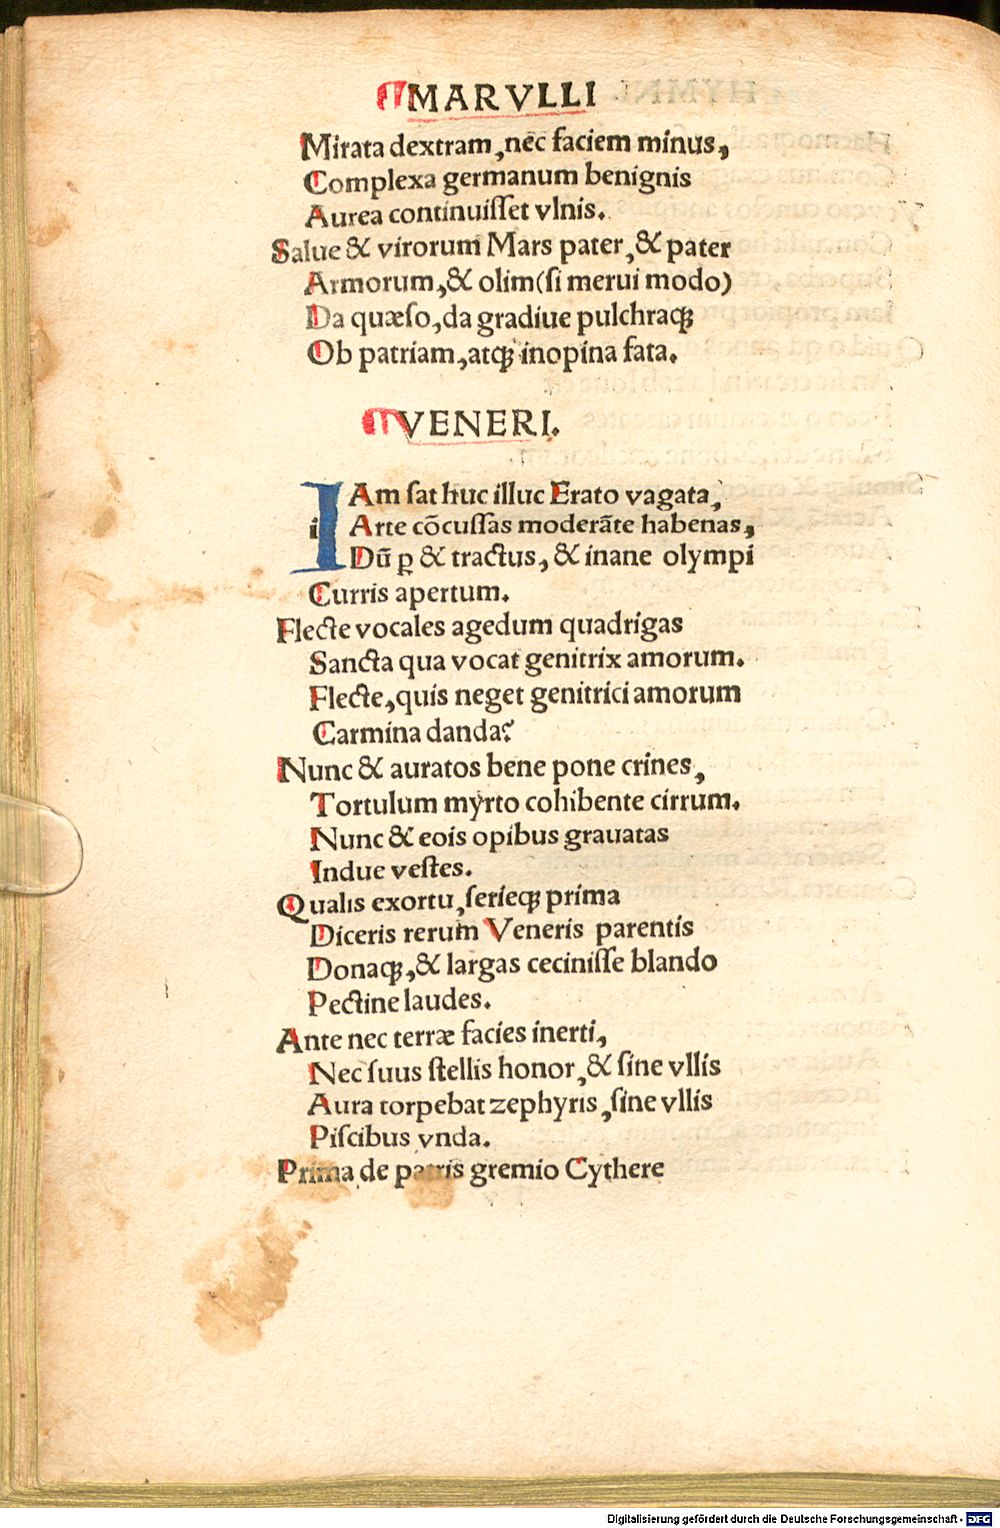 MARVLLI
Mirata dextram, nec faciem minus,
Complexa germanum benignis
Aurea continuiſſet vlnis.
Salue & virorum Mars pater, & pater
Armorum, & olim (ſi merui modo)
Da quæſo, da gradiue pulchraꝗ
Ob patriam, atꝗ inopina fata.
VENERI.
IAm ſat huc illuc Erato vagata,
Arte cõcuſſas moderãte habenas,
Dũ ꝑ & tractus, & inane olympi
Curris apertum.
Flecte vocales agedum quadrigas
Sancta qua vocat genitrix amorum.
Flecte, quis neget genitrici amorum
Carmina danda?
Nunc & auratos bene pone crines,
Tortulum myrto cohibente cirrum.
Nunc & eois opibus grauatas
Indue veſtes.
Qualis exortu, ſerieꝗ prima
Diceris rerum Veneris parentis
Donaꝗ, & largas ceciniſſe blando
Pectine laudes.
Ante nec terræ facies inerti,
Nec ſuus ſtellis honor, & ſine vllis
Aura torpebat zephyris, ſine vllis
Piſcibus vnda.
Prima de patris gremio Cythere
Digitalisierung gefördert durch die Deutsche Forschungsgemeinschaft - DFG